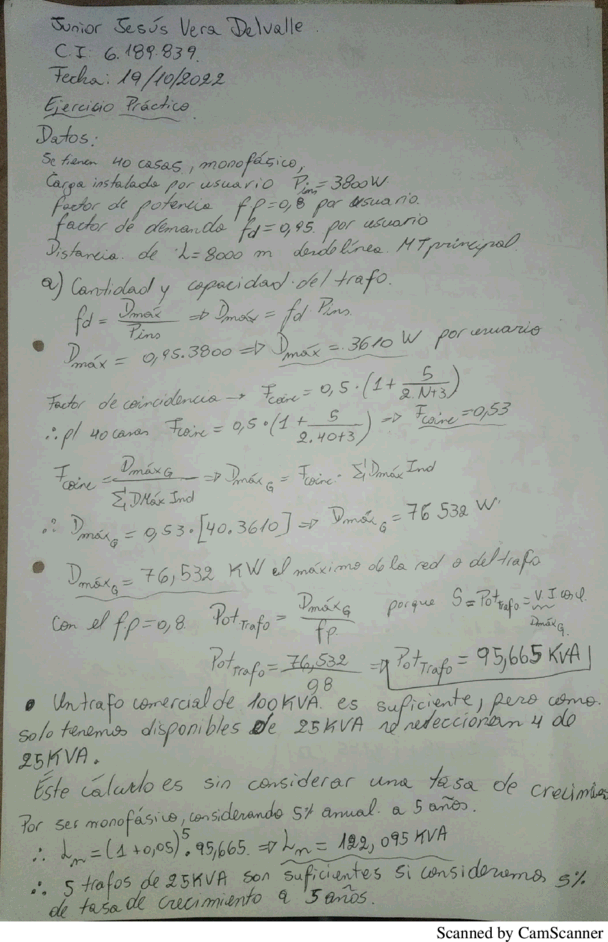 Junior Jesús Vera Delvalle
C.I: 6.189.839.
Fecha: 19/10/2022
Ejercicio Práctico.
Datos:
Se tienen 40 casas, monofásico,
Carga instalada por usuario Pins = 3800W
factor de potencia fp=0,8 por usuario.
factor de demanda fd=0,95. por usuario
Distancia de L=8000 m desde línea MT principal
a) Cantidad y capacidad del trafo.
fd = Dmáx/Pins ⇒ Dmáx = fd · Pins.
Dmáx = 0,95.3800 ⇒ Dmáx = 3610 W por usuario
Factor de coincidencia → Fcoinc = 0,5·(1+5/(2.N+3))
∴ p/ 40 casas Fcoinc = 0,5·(1+5/(2.40+3)) ⇒ Fcoinc=0,53
Fcoinc = DmáxG/Σ DMáx Ind ⇒ DmáxG = Fcoinc · Σ Dmáx Ind
∴ DmáxG = 0,53·[40.3610] ⇒ DmáxG = 76 532 W.
• DmáxG = 76,532 KW el máximo de la red o del trafo
Con el fp=0,8. PotTrafo = DmáxG/fp porque S=PotTrafo = V I cos φ. DmáxG.
PotTrafo = 76,532/0,8 ⇒ PotTrafo = 95,665 KVA
• Un trafo comercial de 100KVA es suficiente, pero como
solo tenemos disponibles de 25KVA se seleccionan 4 de
25KVA.
Éste cálculo es sin considerar una tasa de
Por ser monofásico, considerando 5% anual a 5 años.
∴ Ln = (1+0,05)⁵ · 95,665 ⇒ Ln = 122,095 KVA
∴ 5 trafos de 25KVA son suficientes si consideramos 5%
de tasa de crecimiento a 5 años.
Scanned by CamScanner